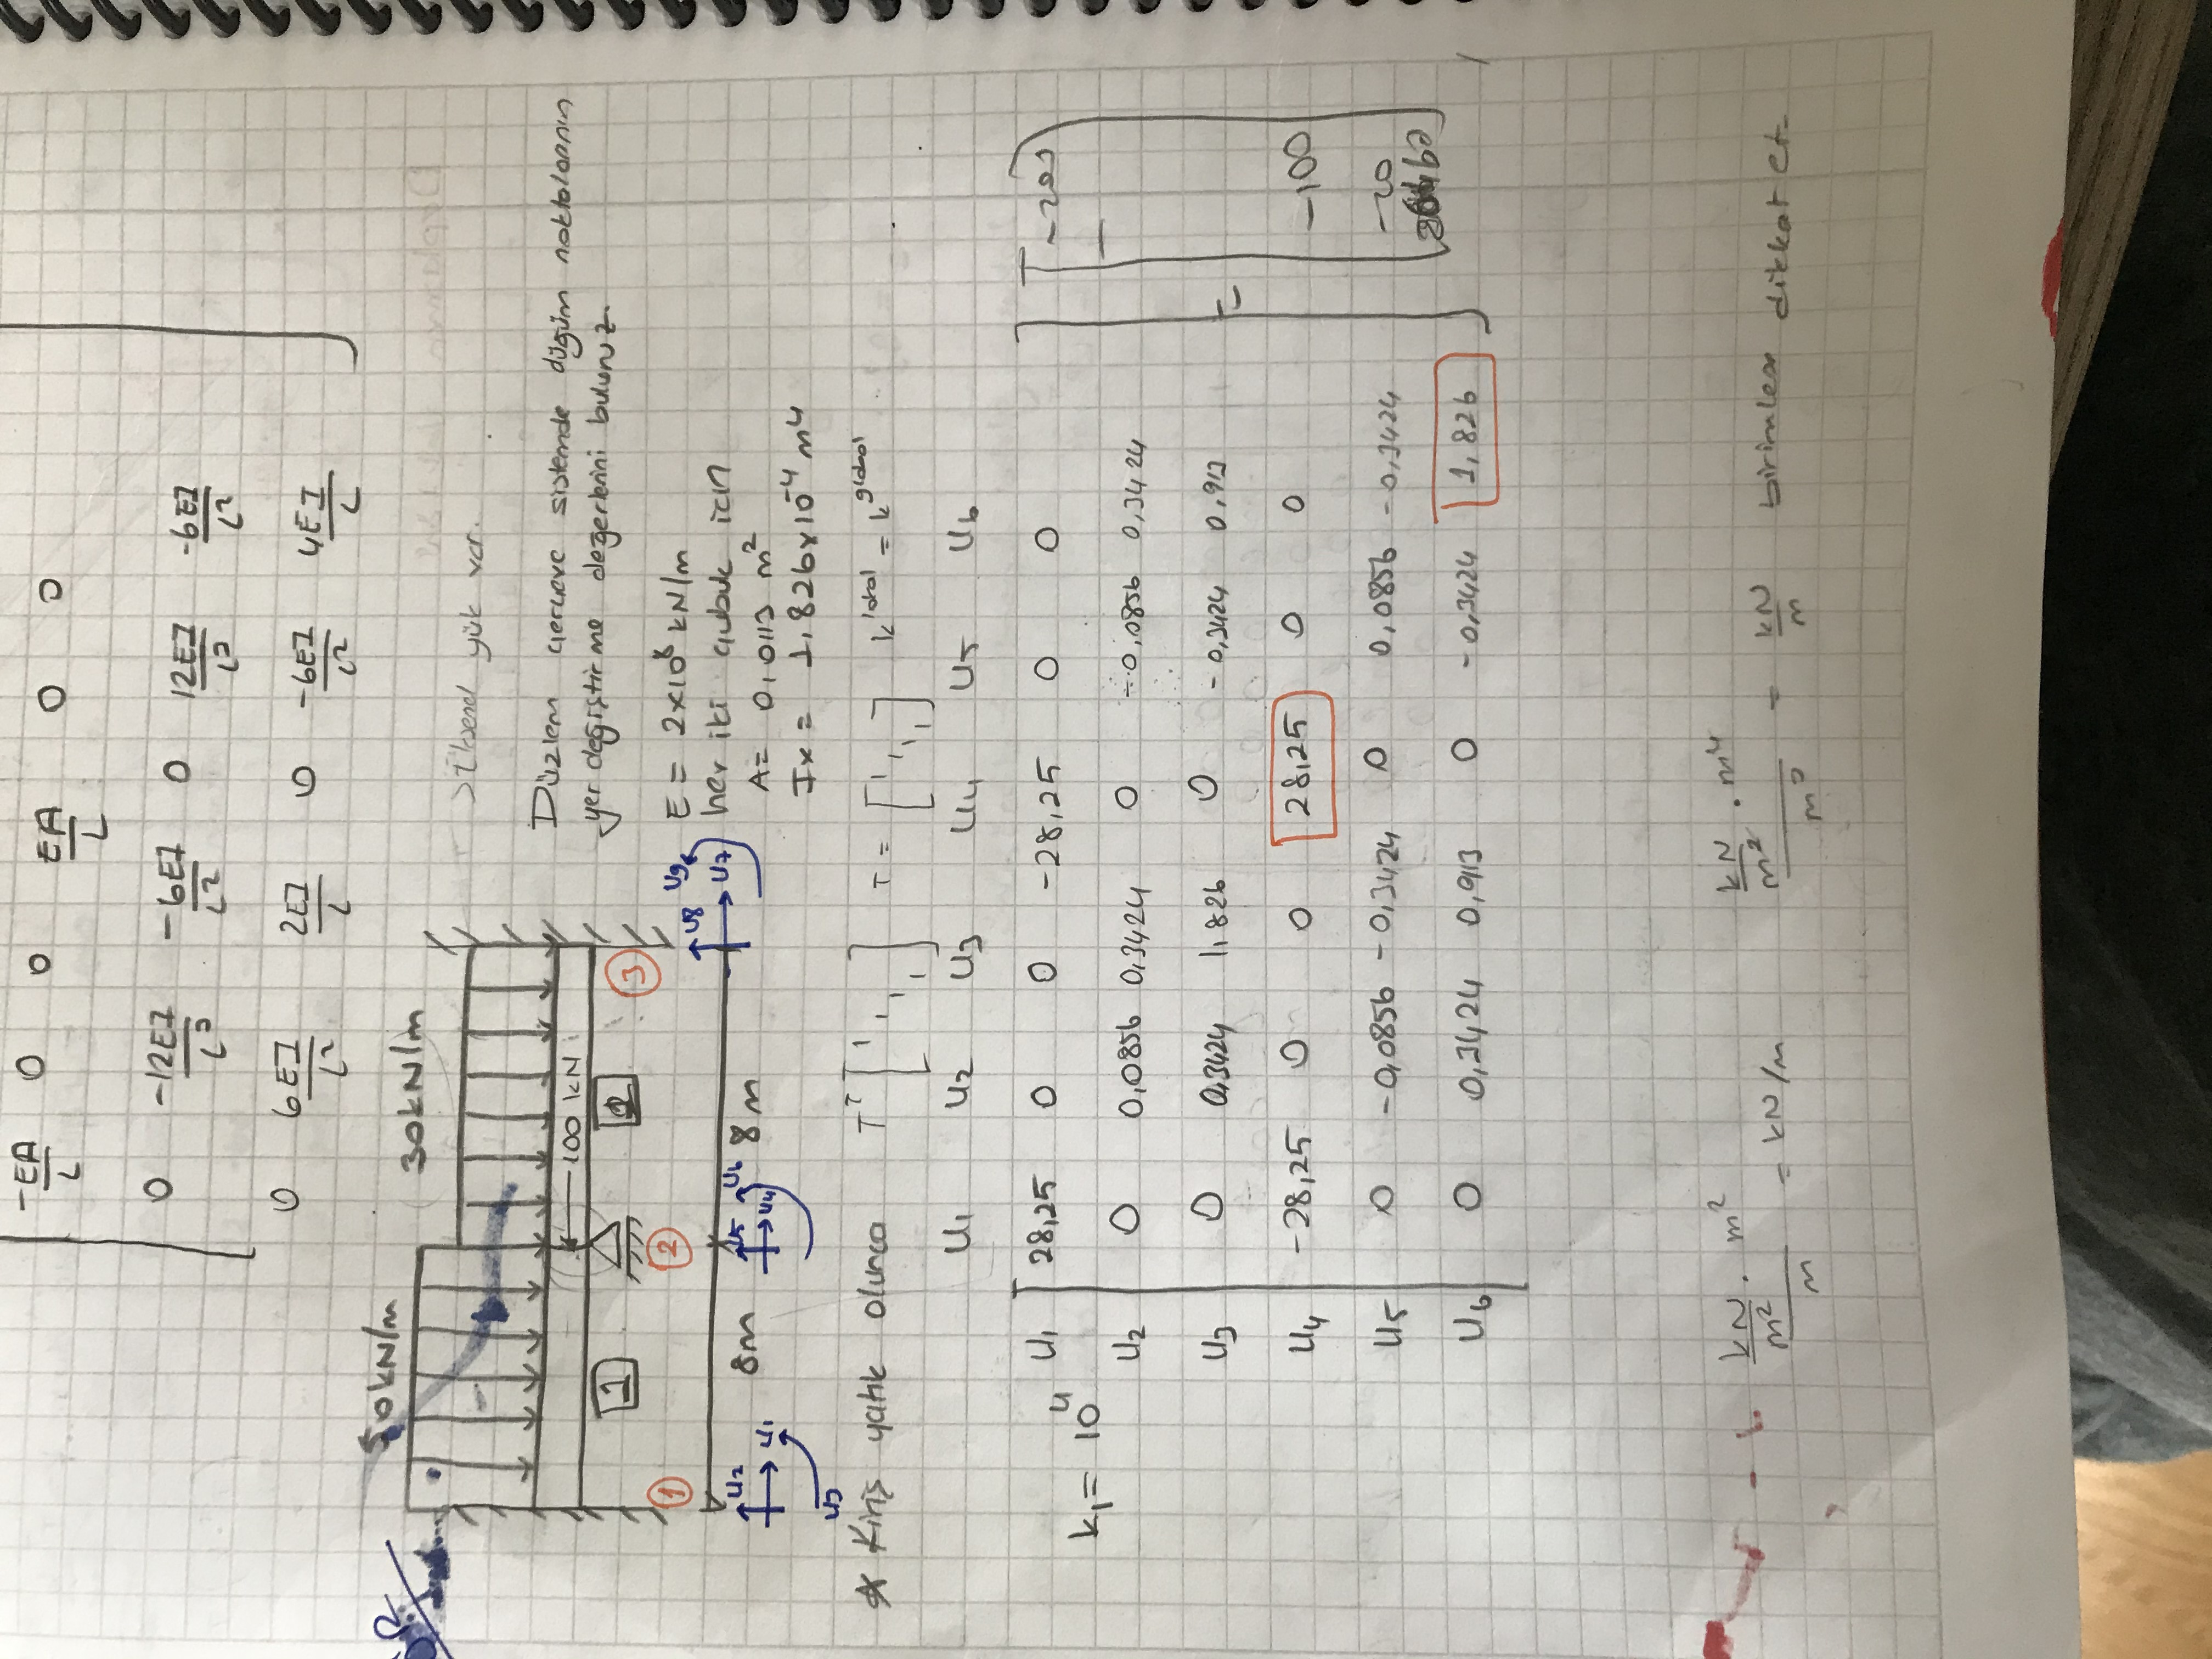 -EA/L 0 0 EA/L 0 0
0 -12EI/L³ -6EI/L² 0 12EI/L³ -6EI/L²
0 6EI/L² 2EI/L 0 -6EI/L² 4EI/L
50kN/m
30kN/m
yük var.
100 kN
Düzlem çerçeve sistemde düğüm noktalarının
yer değiştirme değerlerini bulunuz.
1 2
1 2 3
E = 2x10⁸ kN/m
her iki çubuk için
A = 0,0113 m²
Ix = 1,826x10⁻⁴ m⁴
U2 U5 U6 U8 U9
8m 8m
U1 U4 U7
U3
* Kiriş yatık olunca Tᵀ [1 1 1 1] T = [1 1 1 1] k^lokal = k^global
U1 U2 U3 U4 U5 U6
k₁ = 10⁴
U1 28,25 0 0 -28,25 0 0
U2 0 0,0856 0,3424 0 -0,0856 0,3424
U3 0 0,3424 1,826 0 -0,3424 0,913
=
U4 -28,25 0 0 28,25 0 0 -100
U5 0 -0,0856 -0,3424 0 0,0856 -0,3424 -20
U6 0 0,3424 0,913 0 -0,3424 1,826
kN/m² . m² / m = kN/m kN/m² . m⁴ / m³ = kN/m birimlere dikkat et.